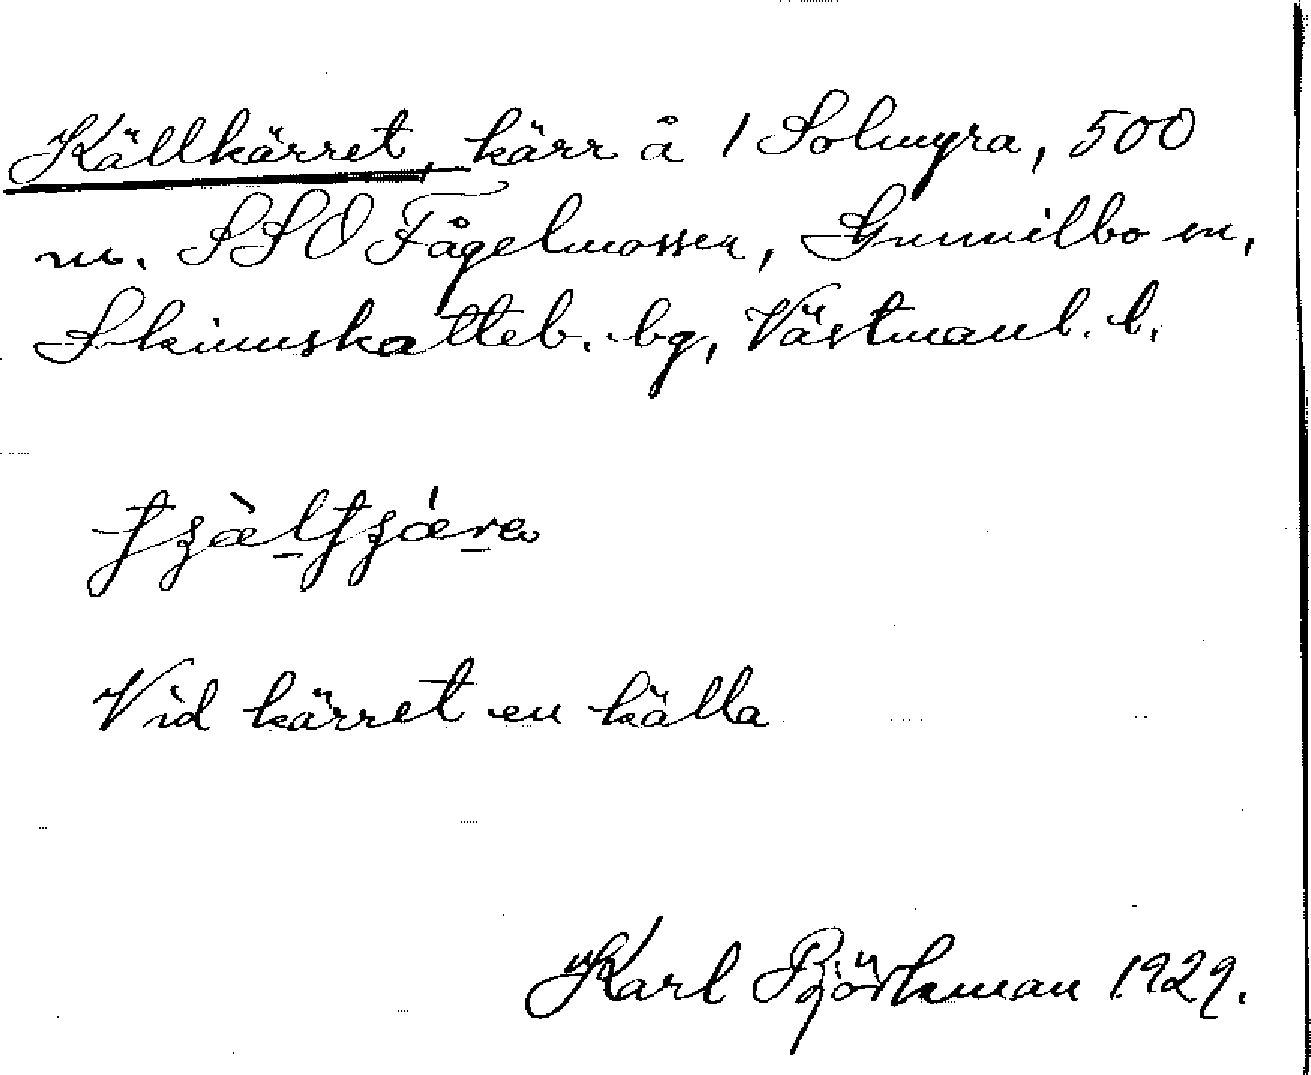 Källkärret, kärr å 1 Solmyra, 500
m. SSO Fågelmossen, Gunnilbo sn,
Skinnskatteb. bg, Västmanl. l.
Vid kärret en källa
Karl Björkman 1929.